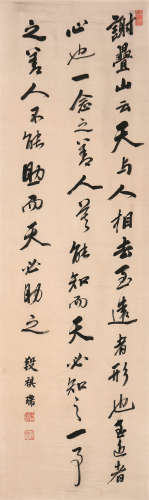 謝疊山云天與人相去至遠者形也至近者
心也一念之善人莫能知而天必知之一事
之善人不能助而天必助之
段祺瑞